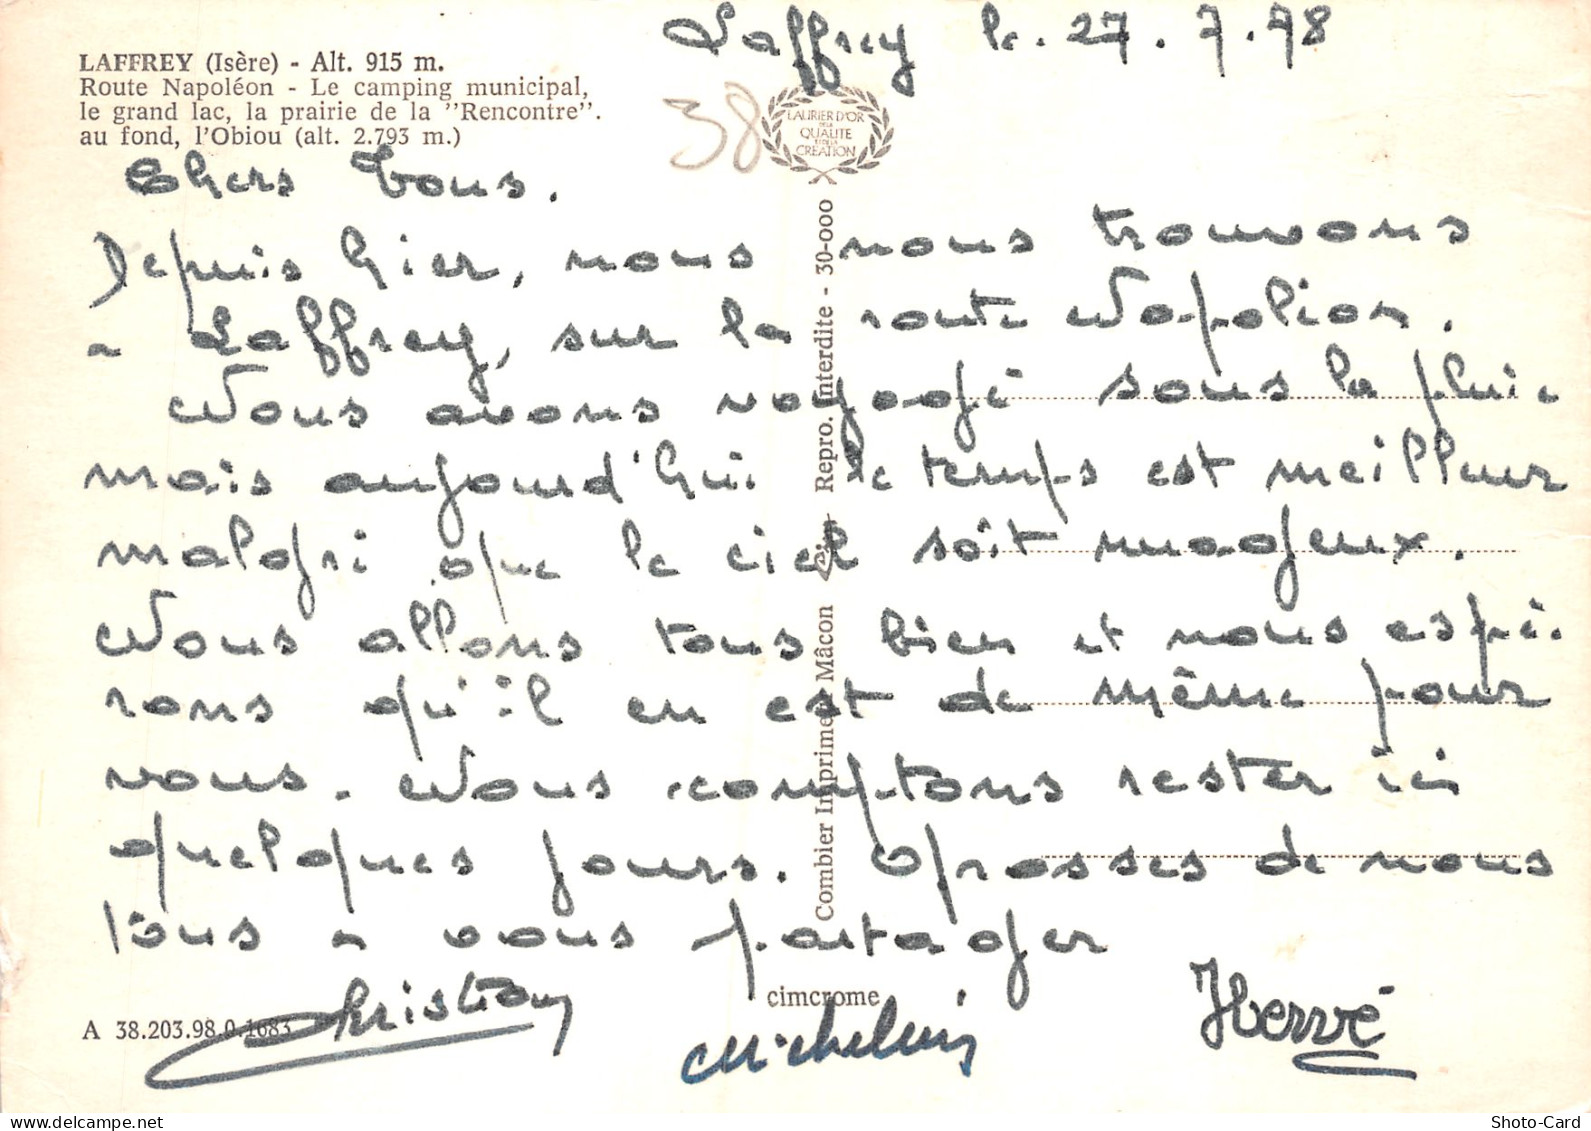 Laffrey le. 27. 7. 78
LAFFREY (Isère) - Alt. 915 m.
Route Napoléon - Le camping municipal,
le grand lac, la prairie de la "Rencontre".
au fond, l'Obiou (alt. 2.793 m.)
38
LAURIER D'OR
DE LA
QUALITE
ET DE LA
CREATION
Chers Tous.
Depuis hier, nous nous trouvons
a Laffrey, sur la route Napolion.
Nous avons voyagé sous la pluie
mais aujourd'hui le temps est meilleur
malgri que le ciel soit nuageux.
Nous allons tous bien et nous espé-
rons qu'il en est de même pour
vous. Nous comptons rester ici
quelques jours. Grosses de nous
tous a vous partager
Christian
Michelin
Hervé
Combier Imprimeur Mâcon
Repro. Interdite - 30-000
cimcrome
A 38.203.98.0.1683
Shoto-Card